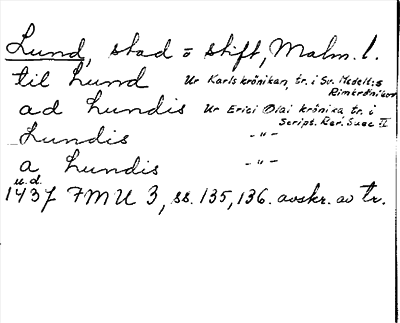 Lund, stad o stift, Malm. l.
til Lund Ur Karlskrönikan, tr. i Sv. Medelt:s
Rimkrönikor
ad Lundis Ur Erici Olai krönika, tr. i
Script. Rer. Suec II
Lundis -"-
a Lundis -"-
u.d.
1437 FMU 3, ss. 135, 136. avskr. av tr.